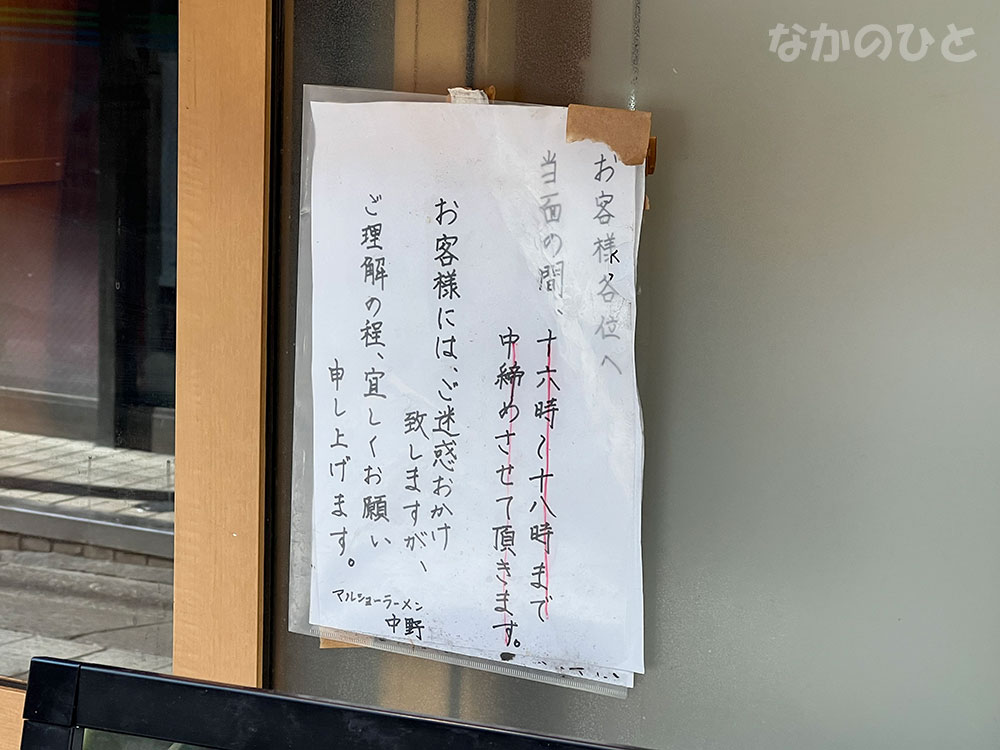 お客様各位へ
当面の間、
十六時〜十八時まで
中締めさせて頂きます。
お客様には、ご迷惑おかけ
致しますが、
ご理解の程、宜しくお願い
申し上げます。
マルショーラーメン
中野
なかのひと